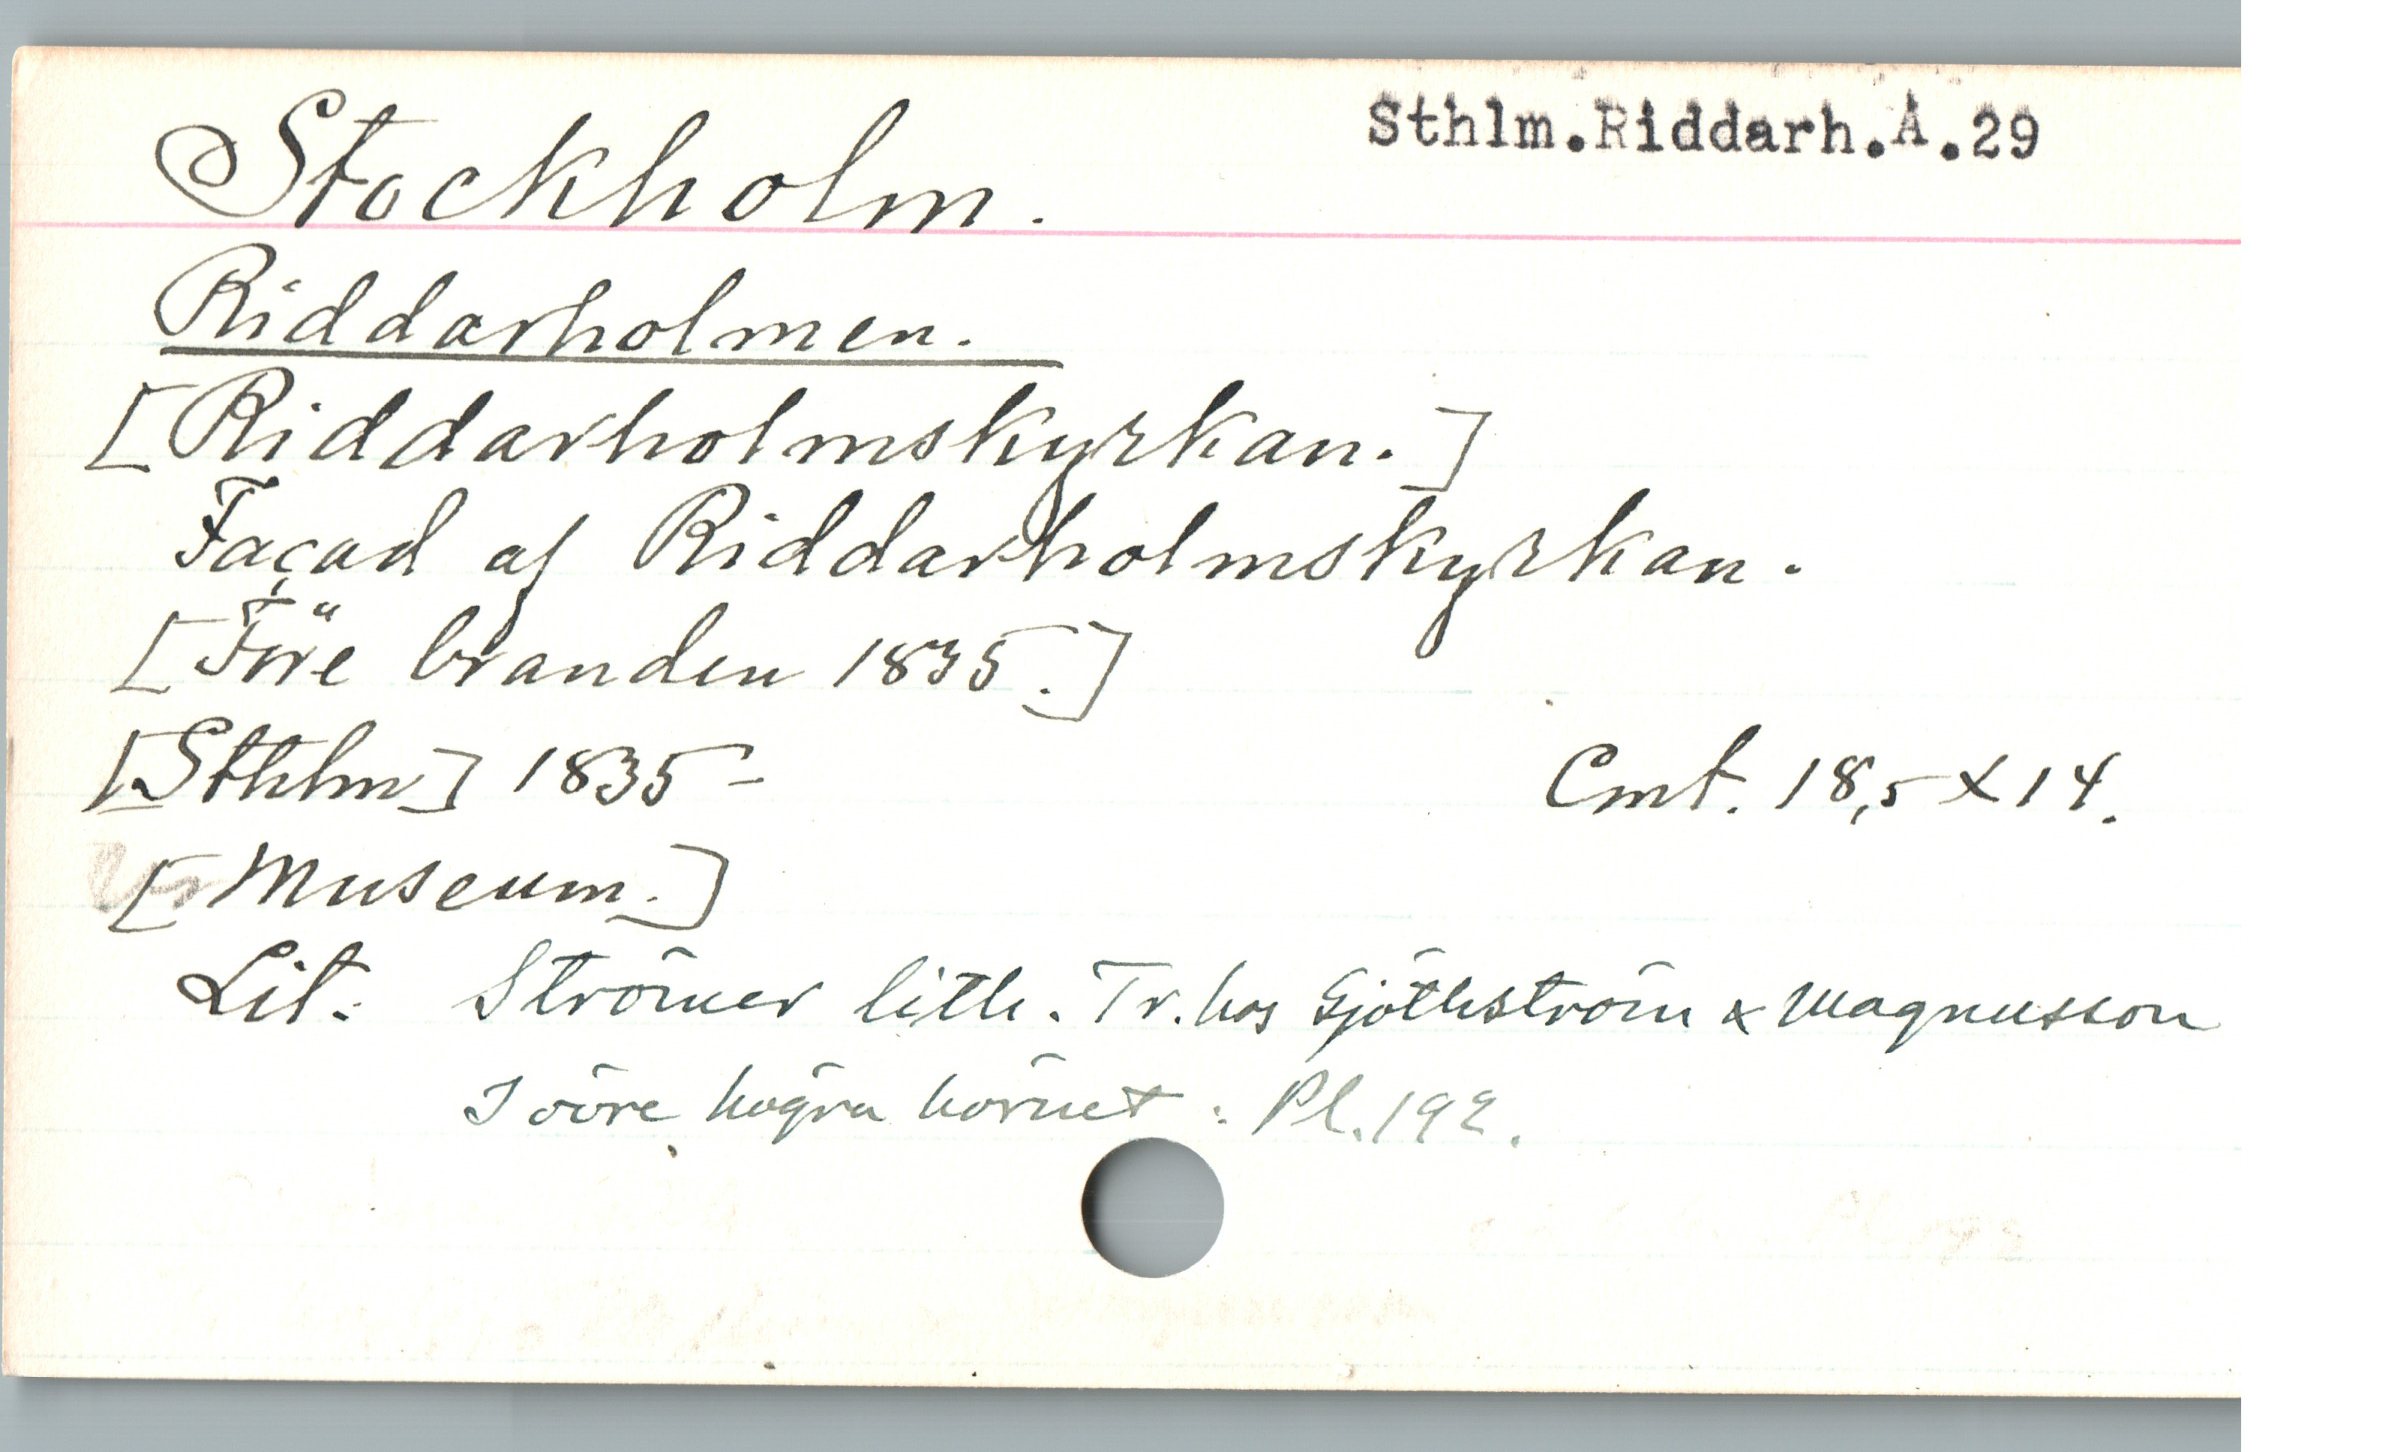 Sthlm.Riddarh.A.29
Stockholm.
Riddarholmen.
[Riddarholmskyrkan.]
Façad af Riddarholmskyrkan.
[Före branden 1835.]
[Sthlm] 1835- Cmt. 18,5 X 14.
[Museum.]
Lit: Strömer lith. Tr. hos Gjöthström & Magnusson
I övre högra hörnet: Pl. 192.